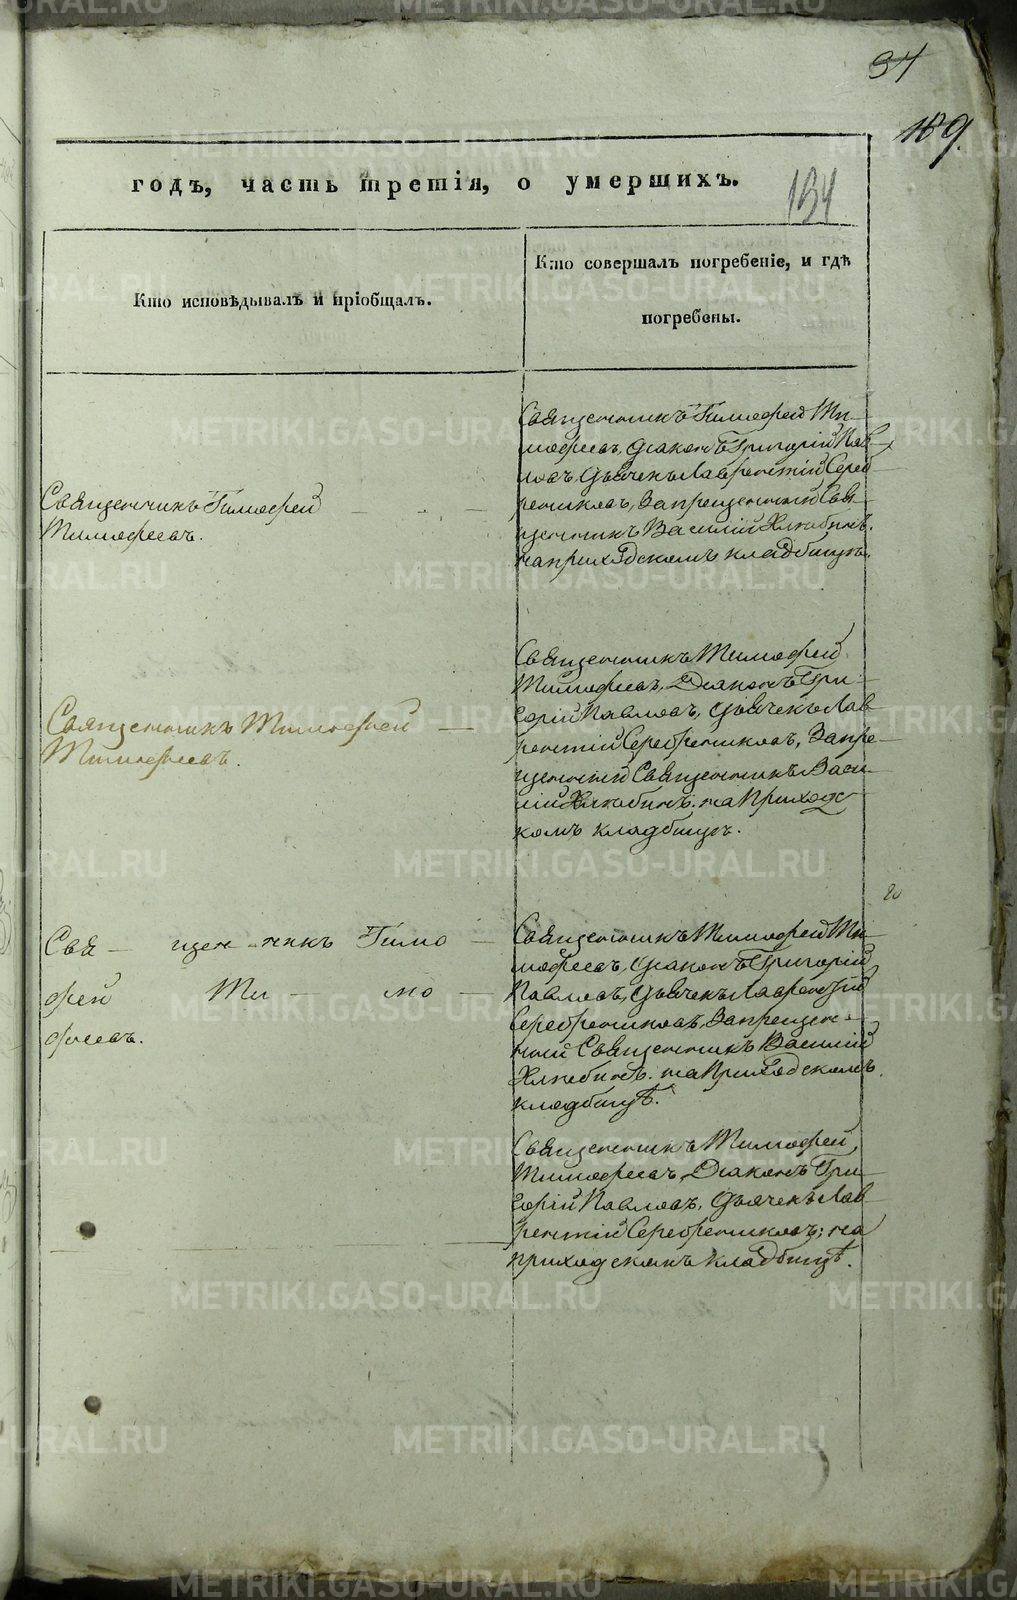 34
109.
годъ, часть третія, о умершихъ.
134
Кто исповѣдывалъ и пріобщалъ.
Кто совершалъ погребеніе, и гдѣ
погребены.
Священникъ Тимофей
Тимофеевъ.
Священникъ Тимофей Ти-
мофеевъ, Діаконъ Григорій Пав-
ловъ, Дьячекъ Лаврентій Сереб-
рениковъ, Запрещенный Свя-
щенникъ Василій Хлюбинъ.
на приходскомъ кладбищѣ.
Священникъ Тимофей
Тимофеевъ.
Священникъ Тимофей
Тимофеевъ, Діаконъ Гри-
горій Павловъ, Дьячекъ Лав-
рентій Серебрениковъ, Запре-
щенный Священникъ Васи-
лій Хлюбинъ. на Приходс-
комъ кладбищѣ.
Свя- щен-никъ Тимо-
фей Ти- мо-
феевъ.
Священникъ Тимофей Ти-
мофеевъ, Діаконъ Григорій
Павловъ, Дьячекъ Лаврентій
Серебрениковъ, Запрещен-
ный Священникъ Василій
Хлюбинъ. на Приходскомъ
кладбищѣ.
Священникъ Тимофей
Тимофеевъ, Діаконъ Гри-
горій Павловъ, Дьячекъ Лав-
рентій Серебрениковъ; на
приходскомъ кладбищѣ.
METRIKI.GASO-URAL.RU